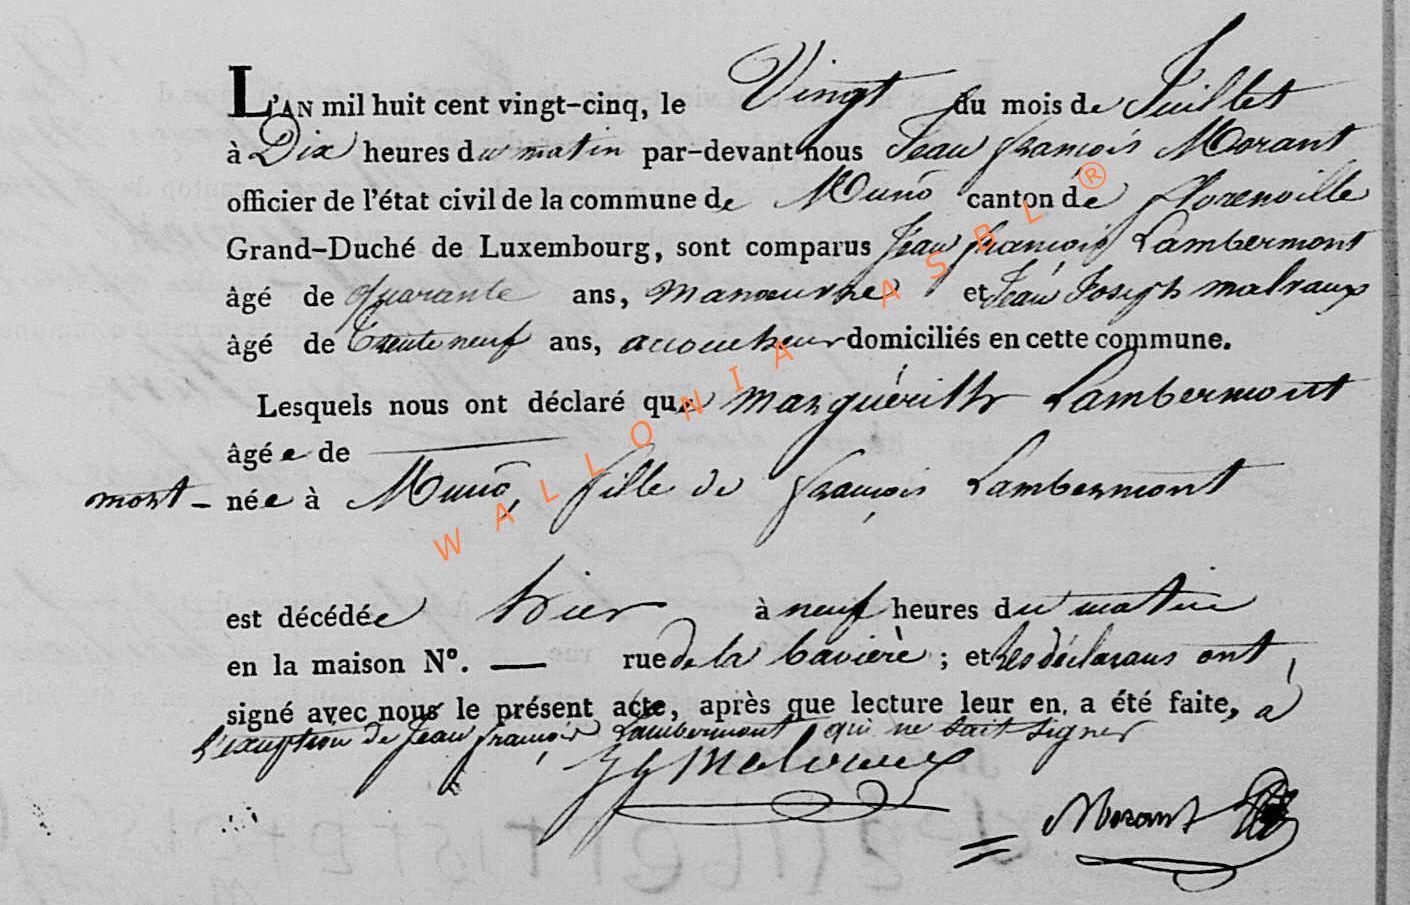 L'AN mil huit cent vingt-cinq, le Vingt du mois de Juillet
à Dix heures du matin par-devant nous Jean françois Morant
officier de l'état civil de la commune de Muno canton de florenville
Grand-Duché de Luxembourg, sont comparus Jean françois Lambermont
âgé de quarante ans, manœuvre et Jean Joseph malvaux
âgé de Trente neuf ans, accoucheur domiciliés en cette commune.
Lesquels nous ont déclaré que Margueritte Lambermont
âgée de
mort - née à Muno, fille de françois Lambermont
est décédée hier à neuf heures du matin
en la maison N°. — rue de la bavière ; et les déclarans ont
signé avec nous le présent acte, après que lecture leur en a été faite, à
l'exception de Jean françois Lambermont qui ne sait signer
JJ Malvaux
Morant
WALLONIA ASBL ®